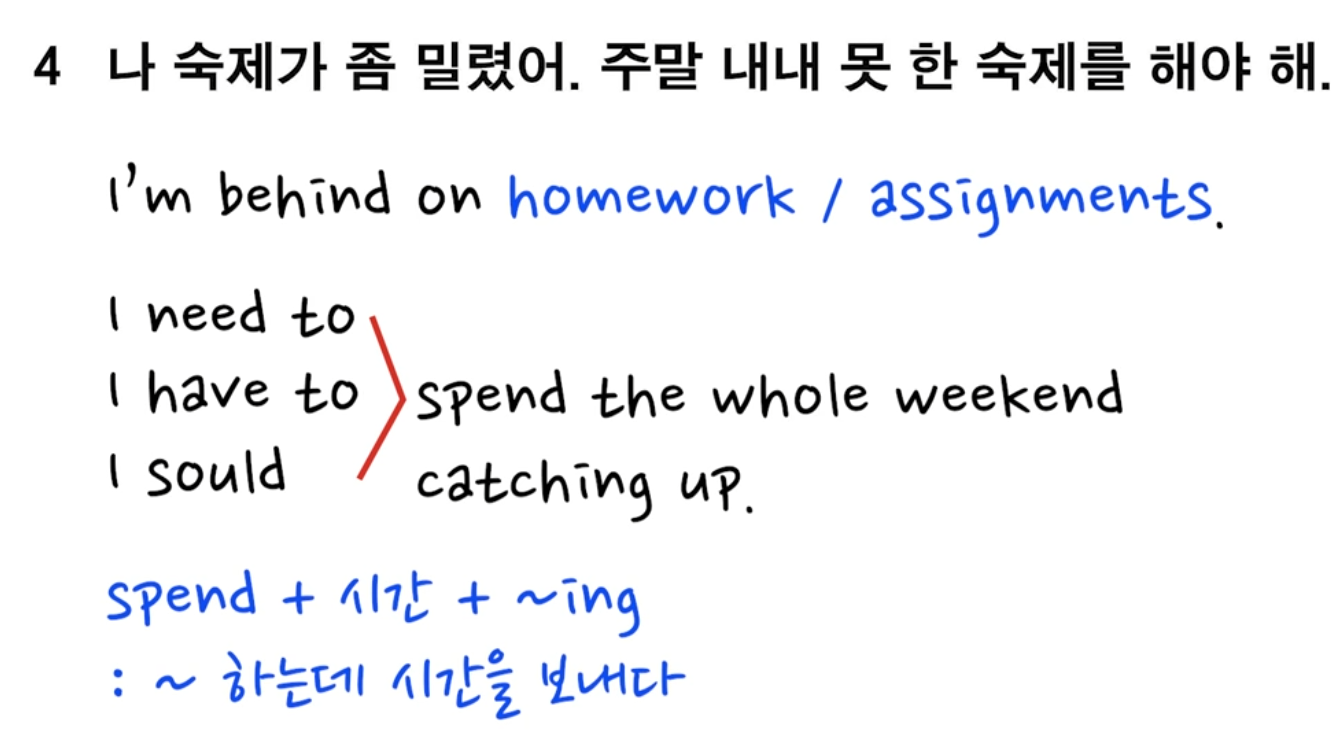 4 나 숙제가 좀 밀렸어. 주말 내내 못 한 숙제를 해야 해.
I'm behind on homework / assignments.
I need to
I have to
I sould
spend the whole weekend
catching up.
spend + 시간 + ~ing
: ~ 하는데 시간을 보내다